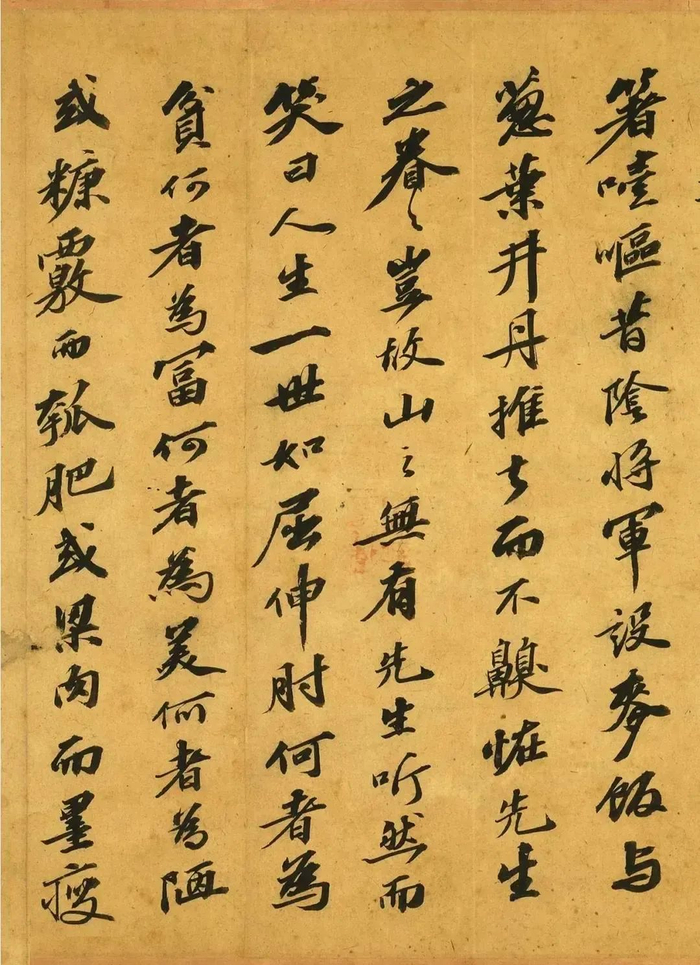 箸噎嘔昔陰將軍設麥飯与
葱葉井丹推去而不齅怪先生
之眷〻豈故山之無有先生听然而
笑曰人生一世如屈伸肘何者為
貧何者為冨何者為美何者為陋
或糠覈而瓠肥或梁肉而墨瘦